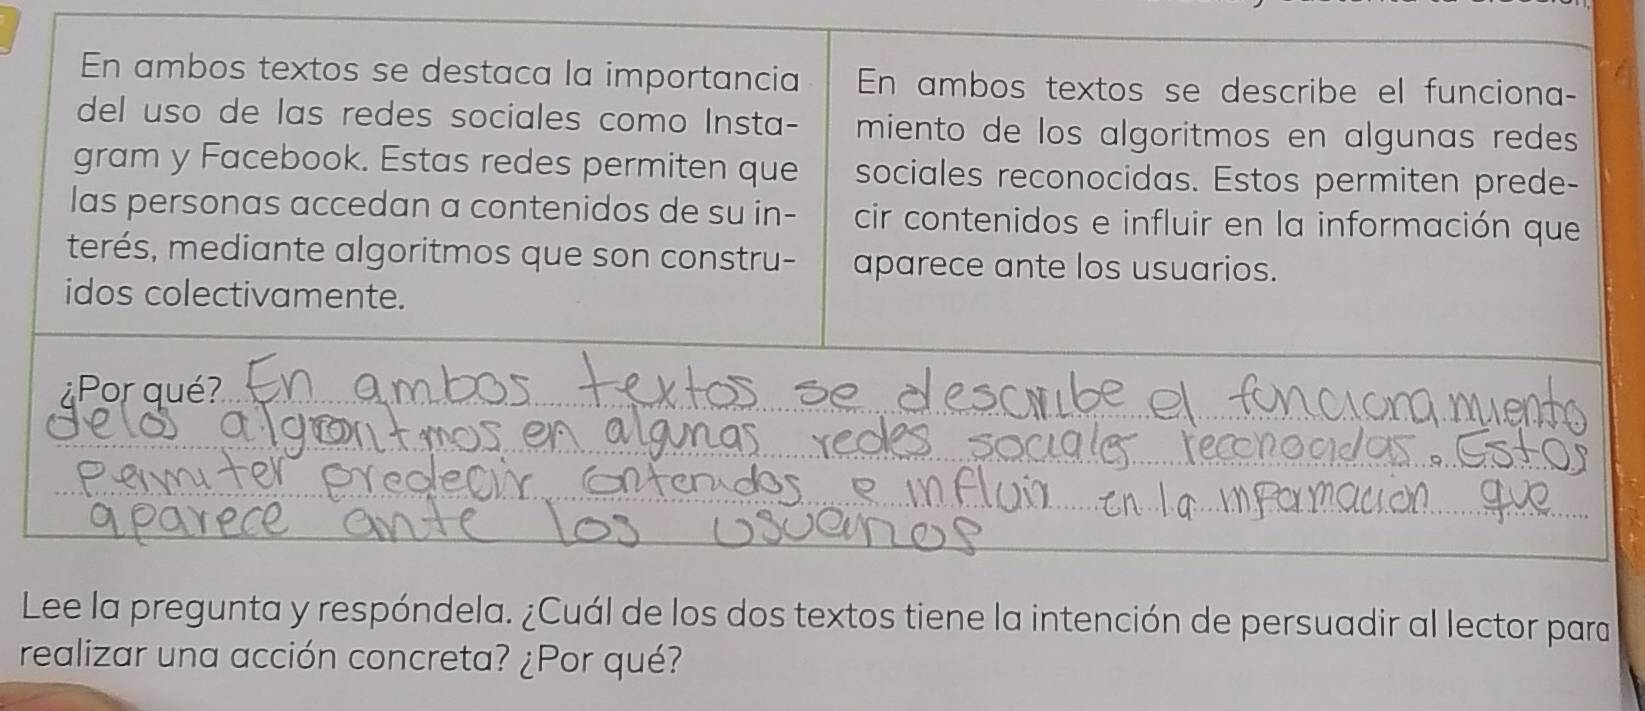 En ambos textos se destaca la importancia
del uso de las redes sociales como Insta-
gram y Facebook. Estas redes permiten que
las personas accedan a contenidos de su in-
terés, mediante algoritmos que son constru-
idos colectivamente.
En ambos textos se describe el funciona-
miento de los algoritmos en algunas redes
sociales reconocidas. Estos permiten prede-
cir contenidos e influir en la información que
aparece ante los usuarios.
¿Por qué? En ambos textos se describe el funcionamiento
de los algrontmos en algunas redes sociales reconocidas. Estos
permiter predecir contenidos e influir en la informacion que
aparece ante los usuarios
Lee la pregunta y respóndela. ¿Cuál de los dos textos tiene la intención de persuadir al lector para
realizar una acción concreta? ¿Por qué?